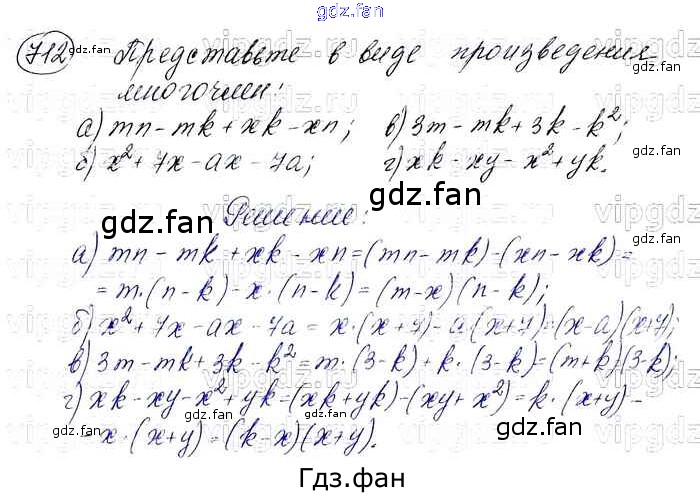 gdz.fan
712 Представьте в виде произведения
многочлен:
а) mn - mk + xk - xn; в) 3m - mk + 3k - k²;
б) x² + 7x - ax - 7a; г) xk - xy - x² + yk.
Решение:
а) mn - mk + xk - xn = (mn - mk) - (xn - xk) =
= m·(n - k) - x·(n - k) = (m - x)(n - k);
б) x² + 7x - ax - 7a = x·(x + 7) - a·(x + 7) = (x - a)(x + 7);
в) 3m - mk + 3k - k² = m·(3 - k) + k·(3 - k) = (m + k)(3 - k);
г) xk - xy - x² + yk = (xk + yk) - (xy + x²) = k·(x + y) -
- x·(x + y) = (k - x)(x + y).
Гдз.фан